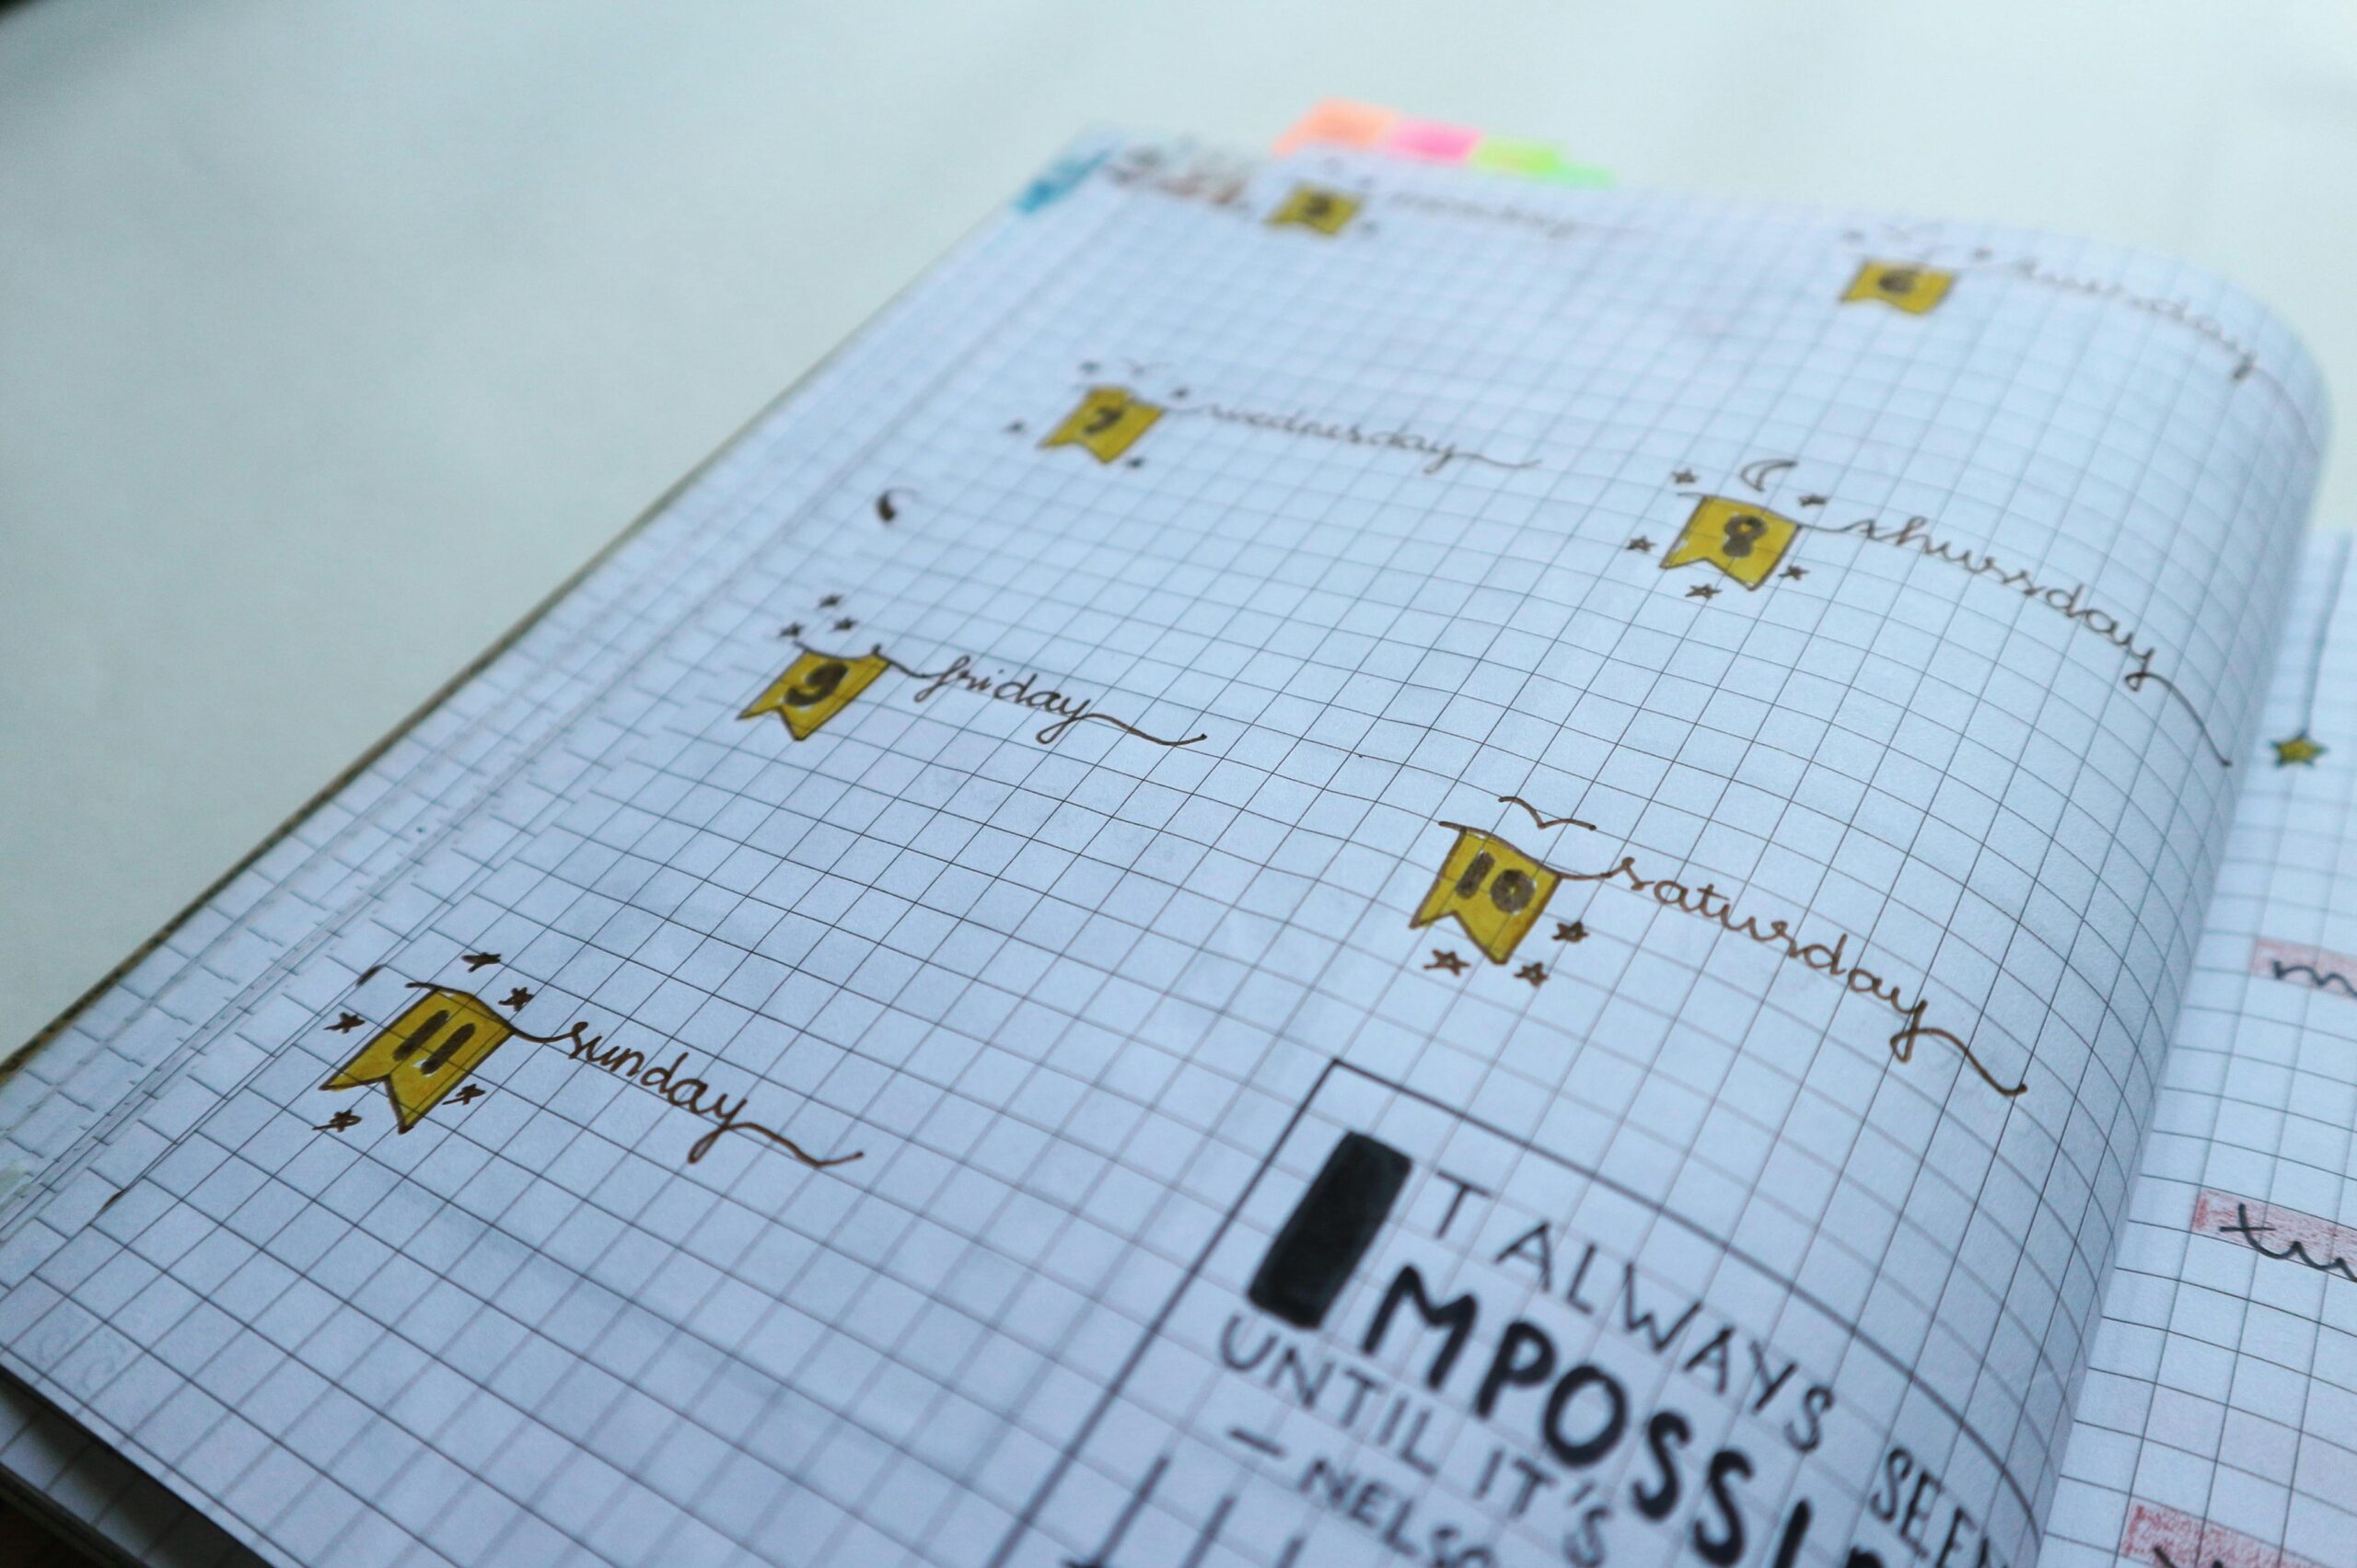 monday
6 tuesday
7 wednesday
8 thursday
9 friday
10 saturday
11 sunday
IT ALWAYS
IMPOSSI
UNTIL IT'S
- NELSO